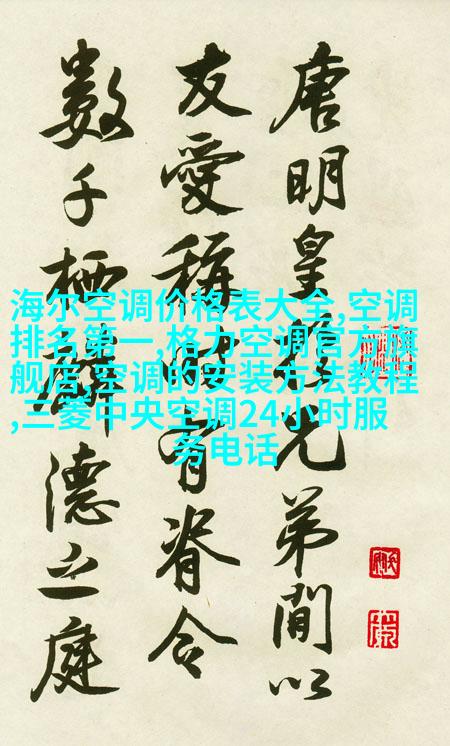 唐明皇兄弟間以
友愛稱時有脊令
數千栖麟德之庭
海尔空调价格表大全,空调
排名第一,格力空调官方旗
舰店,空调的安装方法教程
,三菱中央空调24小时服
务电话